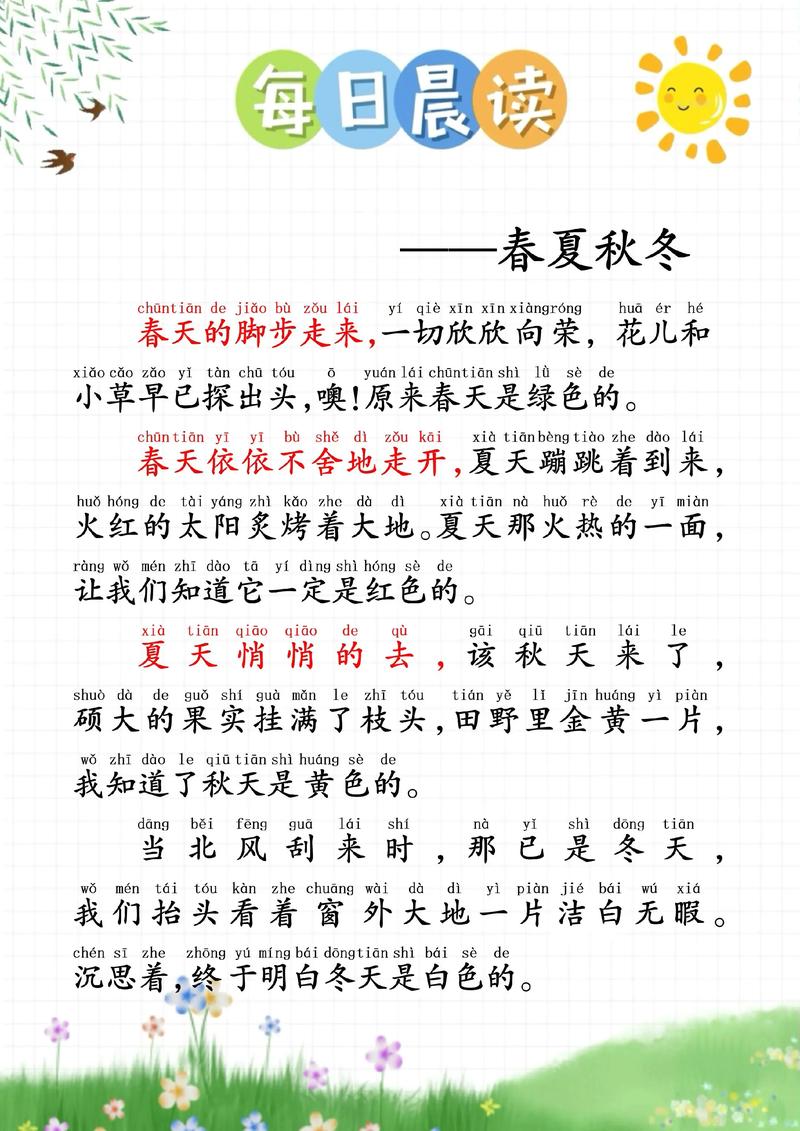 每日晨读
——春夏秋冬
chūntiān de jiǎo bù zǒu lái yí qiè xīn xīn xiàngróng huā ér hé
春天的脚步走来,一切欣欣向荣，花儿和
xiǎo cǎo zǎo yǐ tàn chū tóu ō yuán lái chūntiān shì lǜ sè de
小草早已探出头,噢!原来春天是绿色的。
chūntiān yī yī bù shě dì zǒu kāi xià tiān bèng tiào zhe dào lái
春天依依不舍地走开,夏天蹦跳着到来，
huǒ hóng de tài yáng zhì kǎo zhe dà dì xià tiān nà huǒ rè de yī miàn
火红的太阳炙烤着大地。夏天那火热的一面，
ràng wǒ men zhī dào tā yí dìng shì hóng sè de
让我们知道它一定是红色的。
xià tiān qiāo qiāo de qù gāi qiū tiān lái le
夏天悄悄的去，该秋天来了，
shuò dà de guǒ shí guà mǎn le zhī tóu tián yě lǐ jīn huáng yì piàn
硕大的果实挂满了枝头,田野里金黄一片，
wǒ zhī dào le qiū tiān shì huáng sè de
我知道了秋天是黄色的。
dāng běi fēng guā lái shí nà yǐ shì dōng tiān
当北风刮来时，那已是冬天，
wǒ mén tái tóu kàn zhe chuāng wài dà dì yì piàn jié bái wú xiá
我们抬头看着窗外大地一片洁白无暇。
chén sī zhe zhōng yú míng bái dōng tiān shì bái sè de
沉思着,终于明白冬天是白色的。